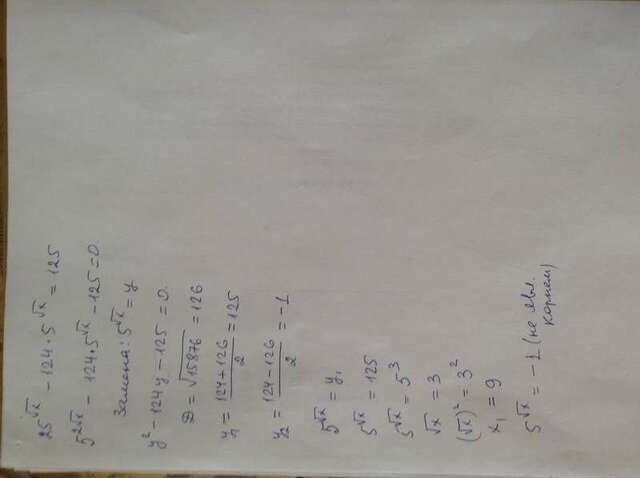 25^√x − 124 · 5^√x = 125
5^2√x − 124 · 5^√x − 125 = 0.
Замена: 5^√x = y
y² − 124y − 125 = 0.
D = √15876 = 126
y₁ = (124 + 126)/2 = 125
y₂ = (124 − 126)/2 = −1
5^√x = y₁
5^√x = 125
5^√x = 5³
√x = 3
(√x)² = 3²
x₁ = 9
5^√x = −1 (не явл.
корнем)